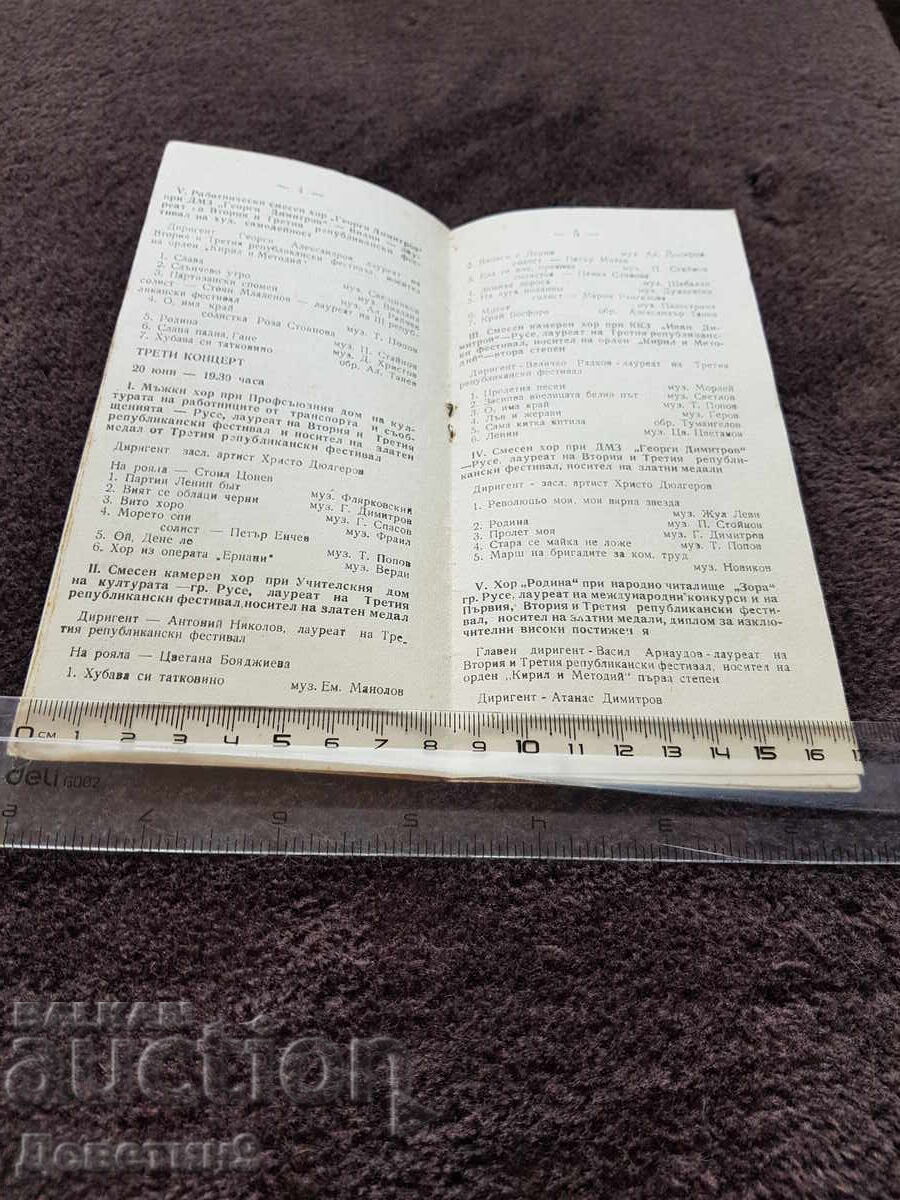 — 4 —
V. Работнически смесен хор „Георги Димитров"
при ДМЗ „Георги Димитров" — лау-
реат на Втория и Третия Републикански фес-
тивал на худ. самодейност
Диригент Георги Александров, лауреат на
Втория и Третия републикански фестивал, носител
на орден „Кирил и Методий"
1. Слава
2. Слънчево утро
3. Партизански спомен
солист — Стоян Младенов — лауреат на III репуб-
ликански фестивал
4. О, има край муз. Т. Попов
солистка Роза Стоянова
5. Родина муз. П. Стайнов
6. Слава падна, Гане муз. Д. Христов
7. Хубава си татковино обр. Ал. Танев
ТРЕТИ КОНЦЕРТ
20 юни — 19.30 часа
I. Мъжки хор при Профсъюзния дом на кул-
турата на работниците от транспорта и съоб-
щенията — Русе, лауреат на Втория и Третия
републикански фестивал и носител на златен
медал от Третия републикански фестивал
Диригент засл. артист Христо Дюлгеров
На рояла — Стоил Цонев
1. Партия Ленин быт муз. Флярковский
2. Вият се облаци черни муз. Г. Димитров
3. Вито хоро муз. Г. Спасов
4. Морето спи муз. Фраил
солист — Петър Енчев
5. Ой, Дене ле муз. Т. Попов
6. Хор из операта „Ернани" муз. Верди
II. Смесен камерен хор при Учителския дом
на културата — гр. Русе, лауреат на Третия
републикански фестивал, носител на златен медал
Диригент — Антоний Николов, лауреат на Тре-
тия републикански фестивал
На рояла — Цветана Бояджиева
1. Хубава си татковино муз. Ем. Манолов
— 5 —
солист — Петър
муз. П. Стайнов
солист — Мария
6. Майка
7. Край Босфора обр. Александър Танев
III. Смесен камерен хор при ККЗ „Иван Ди-
митров"—Русе, лауреат на Третия републиканс-
ки фестивал, носител на орден „Кирил и Мето-
дий"—втора степен
Диригент-Величко Радков-лауреат на Третия
републикански фестивал
1. Пролетна песен муз. Морлей
2. Засипва виелицата белио път муз. Светлов
3. О, има край муз. Т. Попов
4. Лъв и жерави муз. Геров
5. Сама китка китила обр. Тумангелов
6. Ленин муз. Цв. Цветанов
IV. Смесен хор при ДМЗ „Георги Димитров"
—Русе, лауреат на Втория и Третия републи-
кански фестивал, носител на златни медали
Диригент - засл. артист Христо Дюлгеров
1. Революцьо моя, моя вирна звезда
муз. Жул Леви
2. Родина муз. П. Стойнов
3. Пролет моя муз. Г. Димитров
4. Стара се майка не ложе муз. Т. Попов
5. Марш на бригадите за ком. труд
муз. Новиков
V. Хор „Родина" при народно читалище „Зора"
гр. Русе, лауреат на международни конкурси и на
Първия, Втория и Третия републикански фести-
вал, носител на златни медали, диплом за изклю-
чителни високи постижен я
Главен диригент-Васил Арнаудов-лауреат на
Втория и Третия републикански фестивал, носител на
орден „Кирил и Методий" първа степен
Диригент - Атанас Димитров
0 см 1 2 3 4 5 6 7 8 9 10 11 12 13 14 15 16 17
deli 6002
8 7 6 5 4 3 2
BALKAN
auction
Доветин9